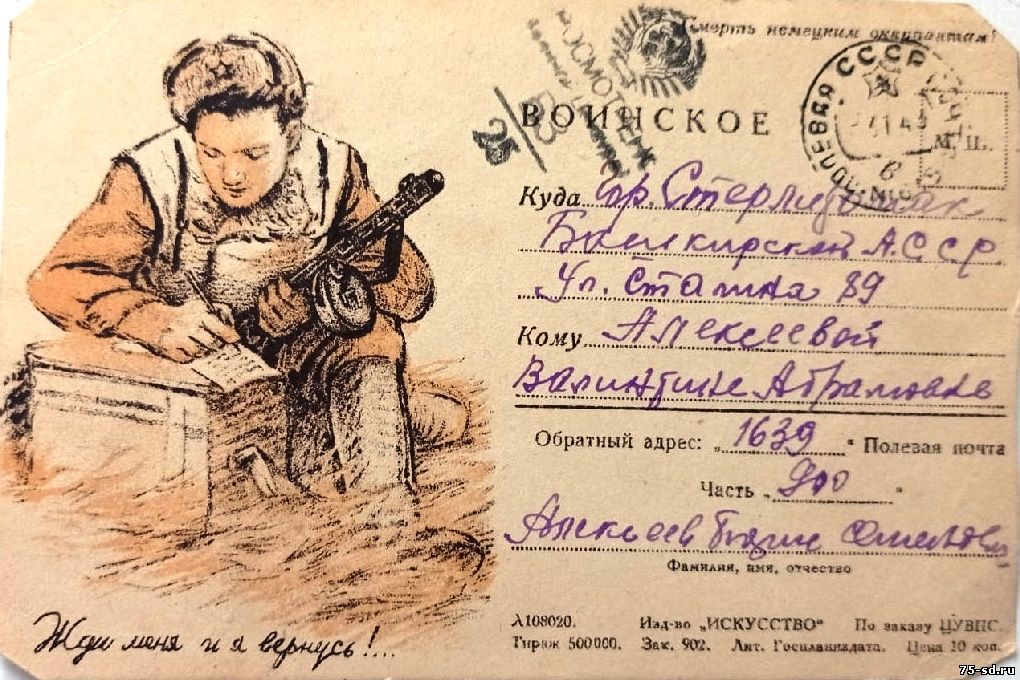 Смерть немецким оккупантам!
ПРОСМОТРЕНО
25
ВОИНСКОЕ
ПОЛЕВАЯ СССР
М. П.
Куда гр. Стерлитамак
Башкирской А.С.С.Р.
Ул. Сталина 89
Кому Алексеевой
Валинтине Абрамовне
Обратный адрес: „1639" Полевая почта
Часть „900"
Алексеев
Фамилия, имя, отчество
Жди меня и я вернусь!...
А108020. Изд-во „ИСКУССТВО" По заказу ЦУВПС.
Тираж 500000. Зак. 902. Лит. Госпланиздата. Цена 10 коп.
75-sd.ru